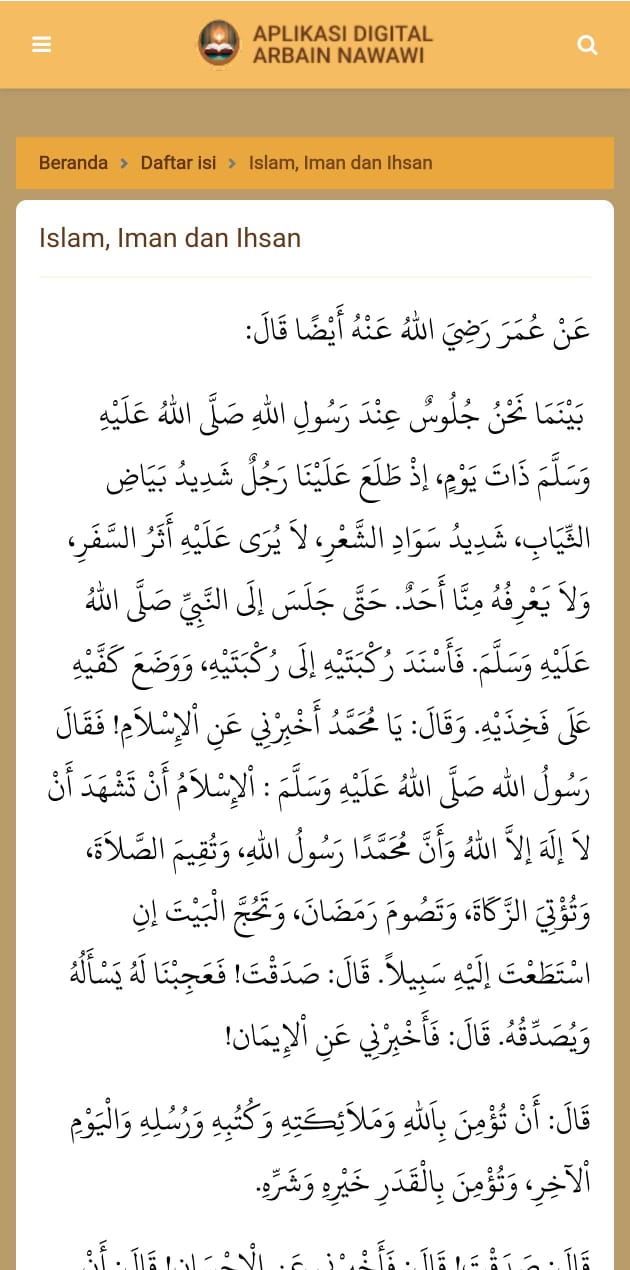 APLIKASI DIGITAL
ARBAIN NAWAWI
Beranda > Daftar isi > Islam, Iman dan Ihsan
Islam, Iman dan Ihsan
عَنْ عُمَرَ رَضِيَ اللهُ عَنْهُ أَيْضًا قَالَ:
بَيْنَمَا نَحْنُ جُلُوسٌ عِنْدَ رَسُولِ اللهِ صَلَّى اللهُ عَلَيْهِ
وَسَلَّمَ ذَاتَ يَوْمٍ، إِذْ طَلَعَ عَلَيْنَا رَجُلٌ شَدِيدُ بَيَاضِ
الثِّيَابِ، شَدِيدُ سَوَادِ الشَّعْرِ، لاَ يُرَى عَلَيْهِ أَثَرُ السَّفَرِ،
وَلاَ يَعْرِفُهُ مِنَّا أَحَدٌ. حَتَّى جَلَسَ إِلَى النَّبِيِّ صَلَّى اللهُ
عَلَيْهِ وَسَلَّمَ. فَأَسْنَدَ رُكْبَتَيْهِ إِلَى رُكْبَتَيْهِ، وَوَضَعَ كَفَّيْهِ
عَلَى فَخِذَيْهِ. وَقَالَ: يَا مُحَمَّدُ أَخْبِرْنِي عَنِ الْإِسْلاَمِ! فَقَالَ
رَسُولُ الله صَلَّى اللهُ عَلَيْهِ وَسَلَّمَ : الْإِسْلاَمُ أَنْ تَشْهَدَ أَنْ
لاَ إِلَهَ إِلاَّ اللهُ وَأَنَّ مُحَمَّدًا رَسُولُ اللهِ، وَتُقِيمَ الصَّلاَةَ،
وَتُؤْتِيَ الزَّكَاةَ، وَتَصُومَ رَمَضَانَ، وَتَحُجَّ الْبَيْتَ إِنِ
اسْتَطَعْتَ إِلَيْهِ سَبِيلاً. قَالَ: صَدَقْتَ! فَعَجِبْنَا لَهُ يَسْأَلُهُ
وَيُصَدِّقُهُ. قَالَ: فَأَخْبِرْنِي عَنِ الْإِيمَان!
قَالَ: أَنْ تُؤْمِنَ بِاَللهِ وَمَلاَئِكَتِهِ وَكُتُبِهِ وَرُسُلِهِ وَالْيَوْمِ
الْآخِرِ، وَتُؤْمِنَ بِالْقَدَرِ خَيْرِهِ وَشَرِّهِ.
قَالَ: صَدَقْتَ! قَالَ: فَأَخْبِرْنِي عَنِ الْإِحْسَانِ! قَالَ: أَنْ